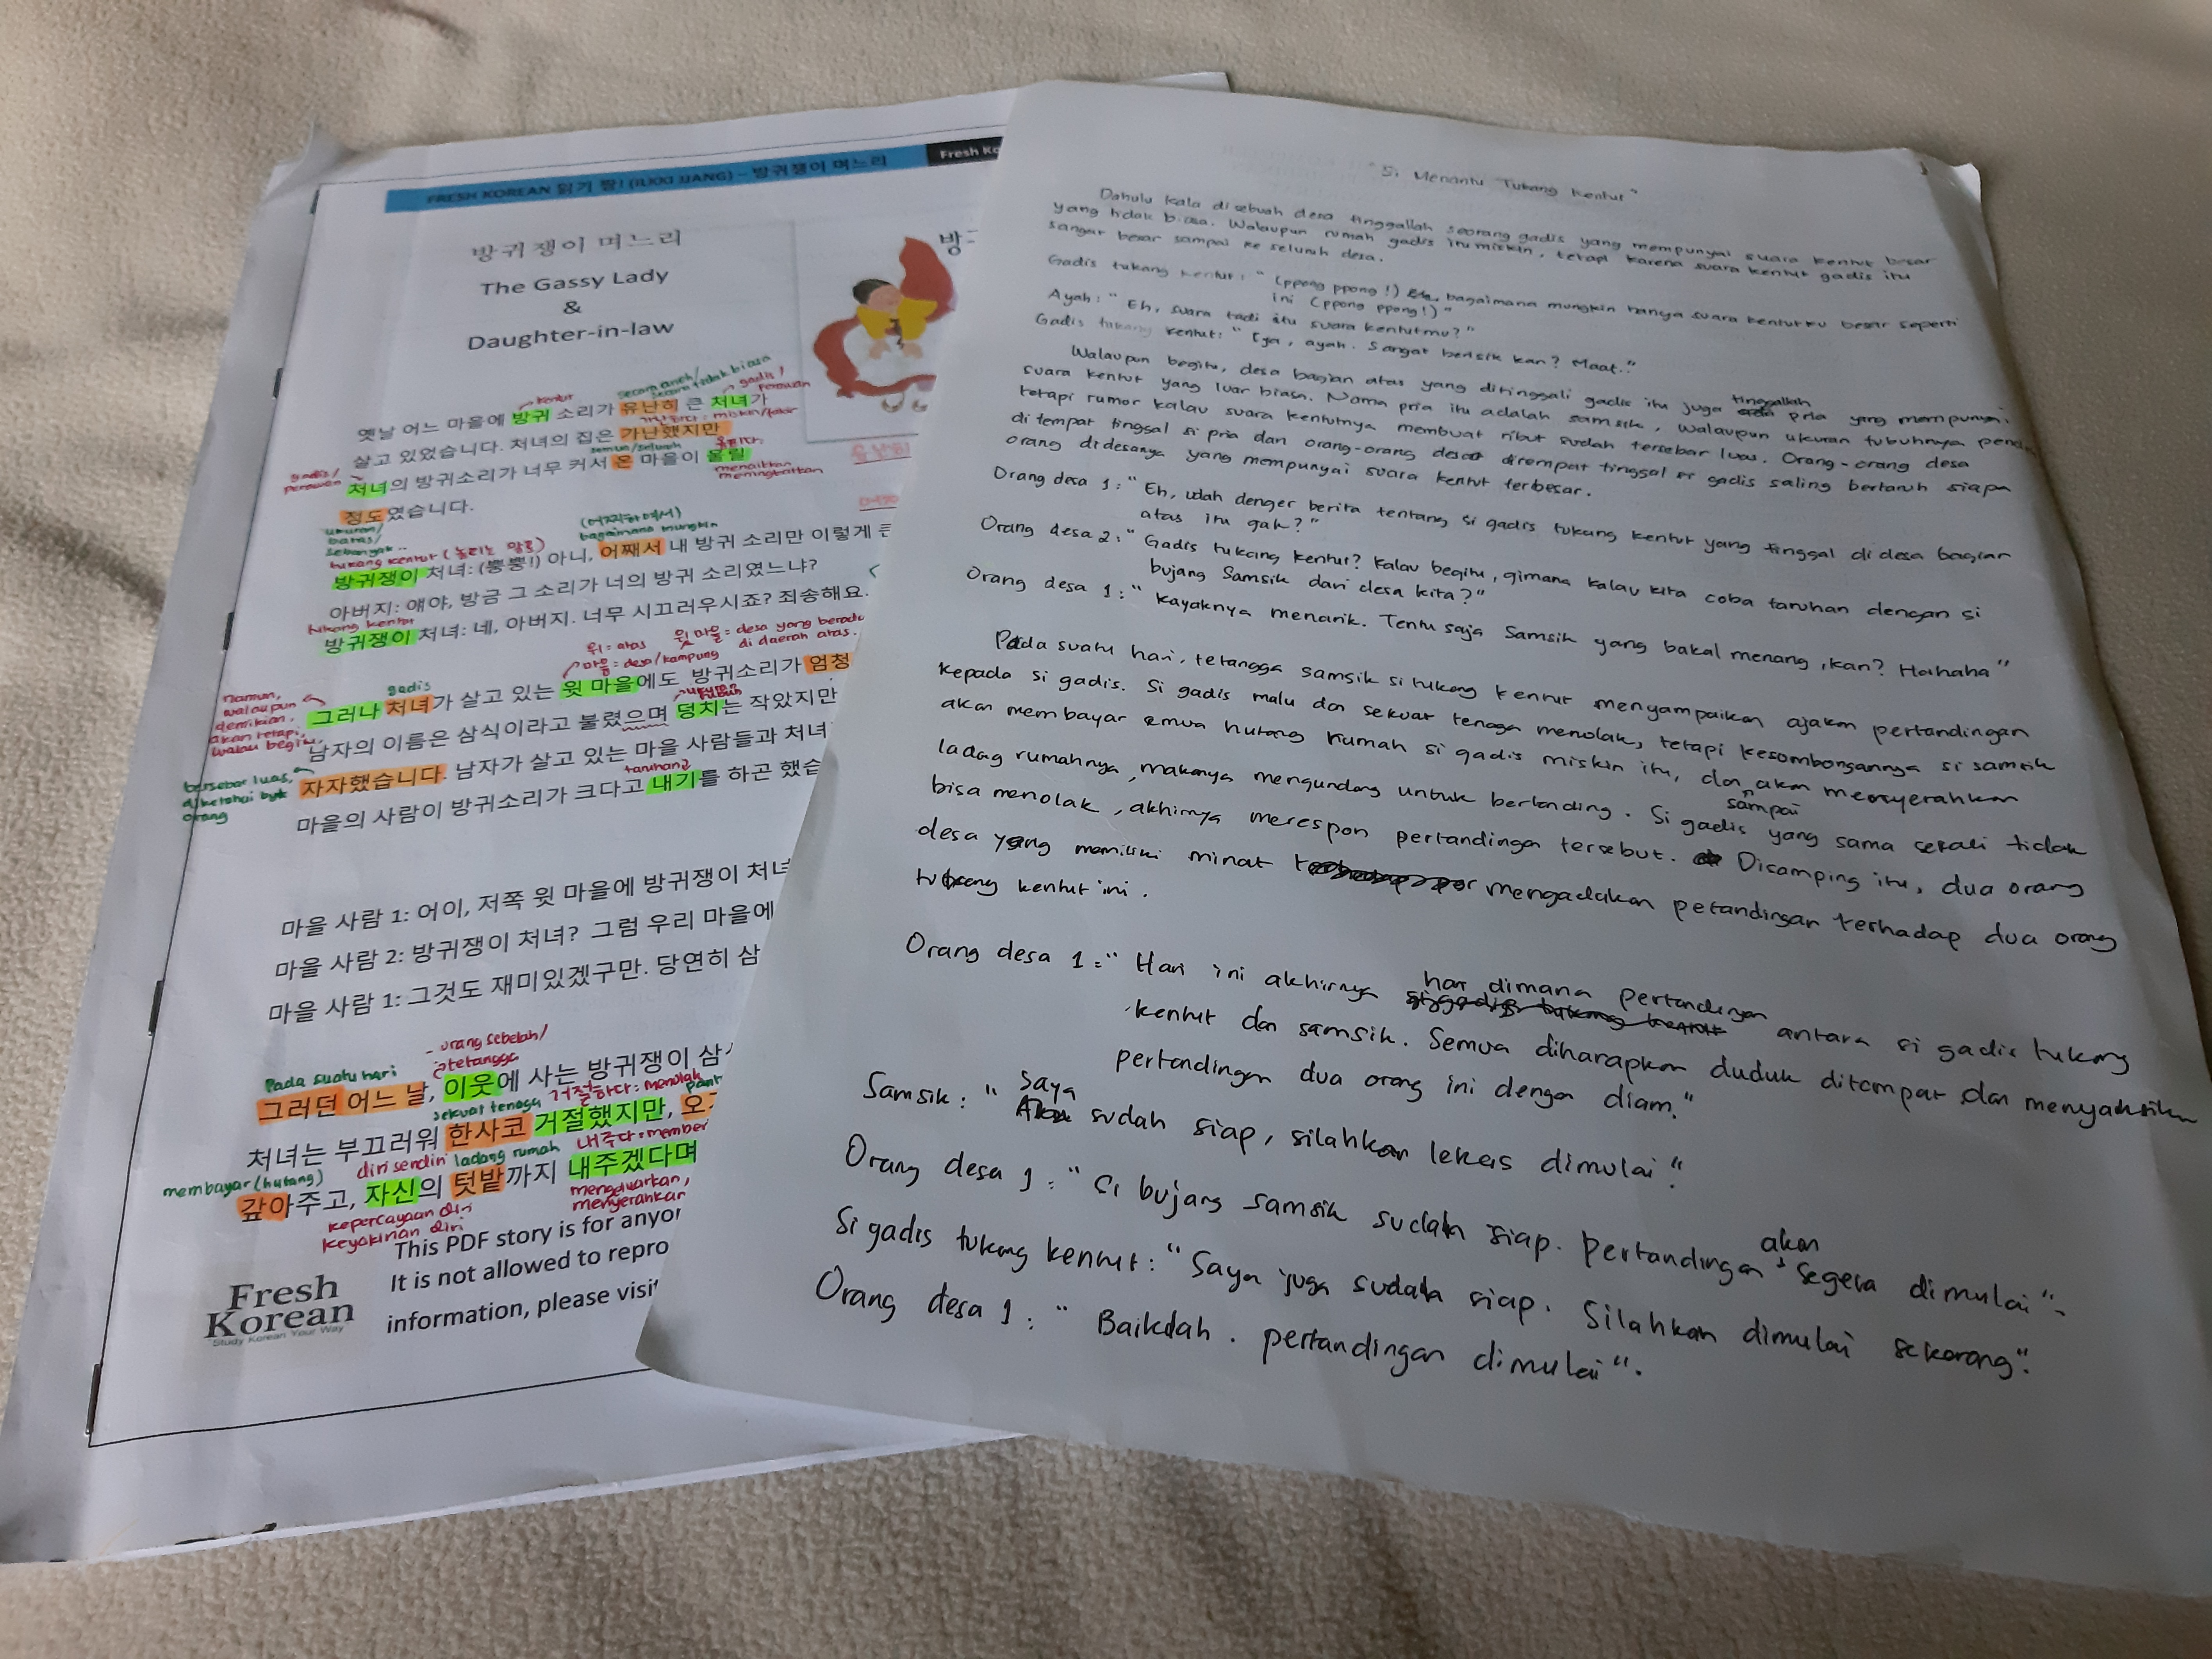 FRESH KOREAN 읽기 짱! (ILKKI JJANG) – 방귀쟁이 며느리
Fresh Ko
방귀쟁이 며느리
The Gassy Lady
&
Daughter-in-law
방귀
kentut
secara aneh/
secara tidak biasa
gadis/
perawan
옛날 어느 마을에 방귀 소리가 유난히 큰 처녀가
가난하다: miskin/fakir
살고 있었습니다. 처녀의 집은 가난했지만
semua/seluruh
gadis/
perawan
처녀의 방귀소리가 너무 커서 온 마을이 울릴
menaikkan
meningkatkan
정도였습니다.
ukuran/
batas/
sebanyak..
(어찌하여서)
bagaimana mungkin
tukang kentut (놀리는 말로)
방귀쟁이 처녀: (뿡뿡!) 아니, 어째서 내 방귀 소리만 이렇게 큰
아버지: 얘야, 방금 그 소리가 너의 방귀 소리였느냐?
tukang kentut
방귀쟁이 처녀: 네, 아버지. 너무 시끄러우시죠? 죄송해요.
위 = atas
마을 = desa/kampung
윗마을 = desa yang berada
di daerah atas.
namun,
walaupun
demikian,
akan tetapi,
walau begitu,
gadis
그러나 처녀가 살고 있는 윗 마을에도 방귀소리가 엄청
tubuh
남자의 이름은 삼식이라고 불렸으며 덩치는 작았지만
bersebar luas,
diketahui byk
orang
자자했습니다. 남자가 살고 있는 마을 사람들과 처녀
taruhan
마을의 사람이 방귀소리가 크다고 내기를 하곤 했습
마을 사람 1: 어이, 저쪽 윗 마을에 방귀쟁이 처녀
마을 사람 2: 방귀쟁이 처녀? 그럼 우리 마을에
마을 사람 1: 그것도 재미있겠구만. 당연히 삼
Pada suatu hari
orang sebelah/
tetangga
그러던 어느 날, 이웃에 사는 방귀쟁이 삼
sekuat tenaga
거절하다: menolak
처녀는 부끄러워 한사코 거절했지만, 오
membayar (hutang)
diri sendiri
ladang rumah
내주다: member
갚아주고, 자신의 텃밭까지 내주겠다며
kepercayaan diri
keyakinan diri
mengeluarkan,
menyerahkan
This PDF story is for anyo
It is not allowed to repro
information, please visit
Fresh
Korean
Study Korean Your Way
"Si Menantu Tukang Kentut"
Dahulu kala disebuah desa tinggallah seorang gadis yang mempunyai suara kentut besar
yang tidak biasa. Walaupun rumah gadis itu miskin, tetapi karena suara kentut gadis itu
sangat besar sampai ke seluruh desa.
Gadis tukang kentut: "(ppong ppong!) bagaimana mungkin hanya suara kentutku besar seperti
ini (ppong ppong!)"
Ayah: "Eh, suara tadi itu suara kentutmu?"
Gadis tukang kentut: "Iya, ayah. Sangat berisik kan? Maaf."
Walaupun begitu, desa bagian atas yang ditinggali gadis itu juga tinggallah pria yang mempunyai
suara kentut yang luar biasa. Nama pria itu adalah samsik, walaupun ukuran tubuhnya pendek
tetapi rumor kalau suara kentutnya membuat ribut sudah tersebar luas. Orang-orang desa
di tempat tinggal si pria dan orang-orang desa ditempat tinggal si gadis saling bertaruh siapa
orang didesanya yang mempunyai suara kentut terbesar.
Orang desa 1: "Eh, udah denger berita tentang si gadis tukang kentut yang tinggal di desa bagian
atas itu gak?"
Orang desa 2: "Gadis tukang kentut? Kalau begitu, gimana kalau kita coba taruhan dengan si
bujang Samsik dari desa kita?"
Orang desa 1: "Kayaknya menarik. Tentu saja Samsik yang bakal menang, kan? Hahaha"
Pada suatu hari, tetangga samsik si tukang kentut menyampaikan ajakan pertandingan
kepada si gadis. Si gadis malu dan sekuat tenaga menolak, tetapi kesombongannya si samsik
akan membayar semua hutang rumah si gadis miskin itu, dan sampai akan menyerahkan
ladang rumahnya, makanya mengundang untuk bertanding. Si gadis yang sama sekali tidak
bisa menolak, akhirnya merespon pertandingan tersebut. Disamping itu, dua orang
desa yang memiliki minat mengadakan petandingan terhadap dua orang
tukang kentut ini.
Orang desa 1: "Hari ini akhirnya hari dimana pertandingan antara si gadis tukang
kentut dan samsik. Semua diharapkan duduk ditempat dan menyaksikan
pertandingan dua orang ini dengan diam."
Samsik: "Saya sudah siap, silahkan lekas dimulai".
Orang desa 1: "Si bujang samsik sudah siap. Pertandingan akan segera dimulai".
Si gadis tukang kentut: "Saya juga sudah siap. Silahkan dimulai sekarang".
Orang desa 1: "Baiklah. pertandingan dimulai".